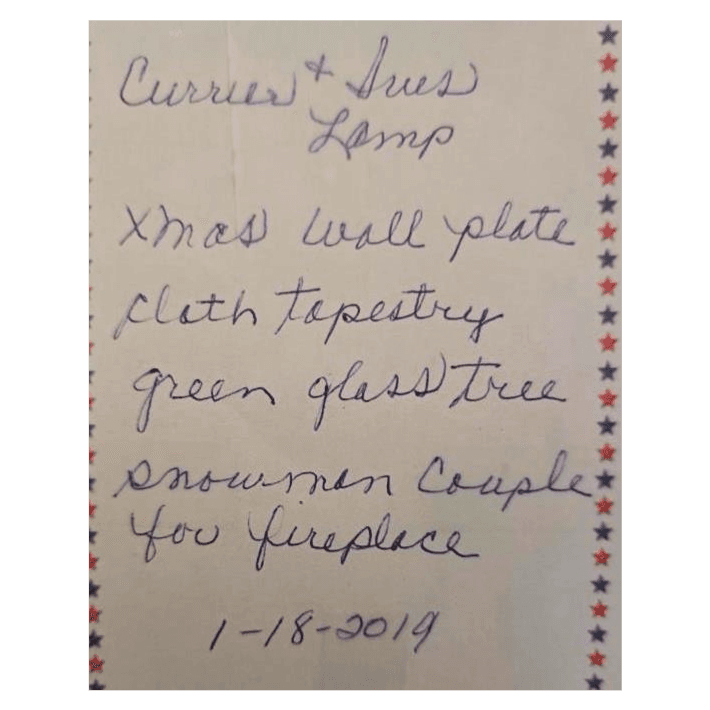 Currier + Ives
Lamp
Xmas wall plate
cloth tapestry
green glass tree
snowman couple
for fireplace
1-18-2019